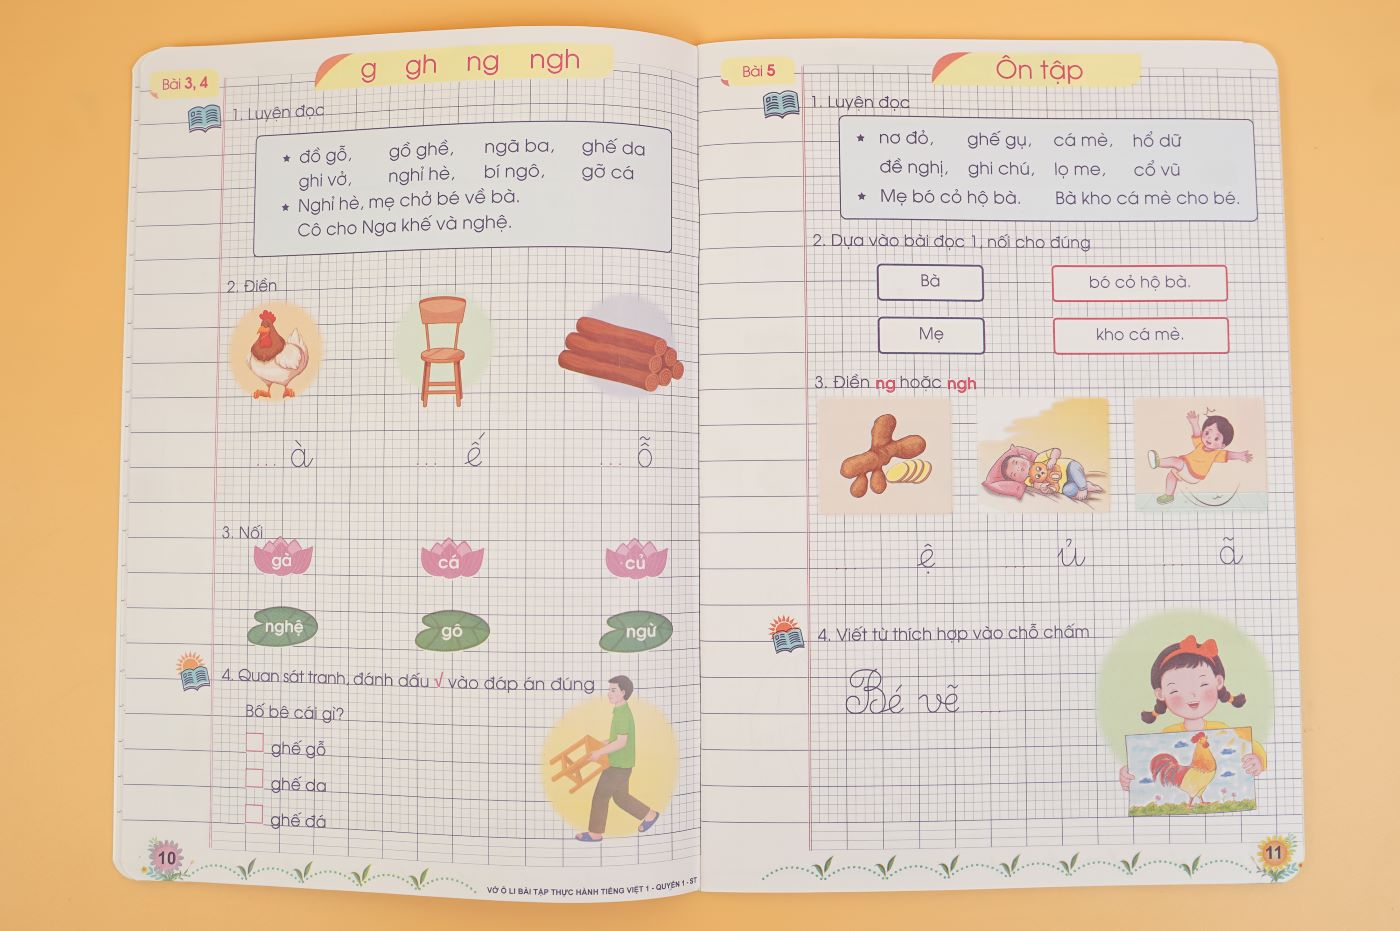 Bài 3, 4
g gh ng ngh
1. Luyện đọc
★ đồ gỗ, gồ ghề, ngã ba, ghế da
ghi vở, nghỉ hè, bí ngô, gỡ cá
★ Nghỉ hè, mẹ chở bé về bà.
Cô cho Nga khế và nghệ.
2. Điền
... à ... ế ... ỗ
3. Nối
gà cá củ
nghệ gô ngừ
4. Quan sát tranh, đánh dấu √ vào đáp án đúng
Bố bê cái gì?
ghế gỗ
ghế da
ghế đá
10
VỞ Ô LI BÀI TẬP THỰC HÀNH TIẾNG VIỆT 1 - QUYỂN 1 - ST
Bài 5
Ôn tập
1. Luyện đọc
★ nơ đỏ, ghế gụ, cá mè, hổ dữ
đề nghị, ghi chú, lọ me, cổ vũ
★ Mẹ bó cỏ hộ bà. Bà kho cá mè cho bé.
2. Dựa vào bài đọc 1, nối cho đúng
Bà bó cỏ hộ bà.
Mẹ kho cá mè.
3. Điền ng hoặc ngh
... ệ ... ủ ... ã
4. Viết từ thích hợp vào chỗ chấm
Bé vẽ ...
11